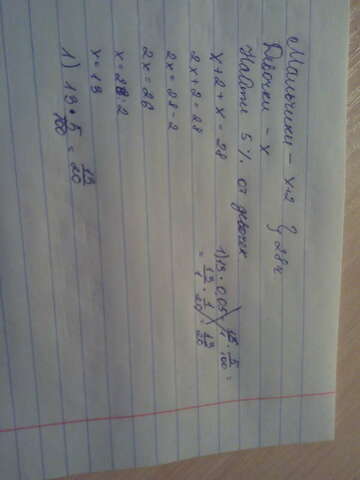 Мальчики – x+2 } 28ч.
Девочки – x
Найти 5% от девочек
x+2+x=28
2x+2=28
2x=28-2
2x=26
x=26:2
x=13
1) 13 * 5/100 = 13/20
1) 13 · 0,05 = 13/1 · 5/100 =
= 13/1 · 1/20 = 13/20